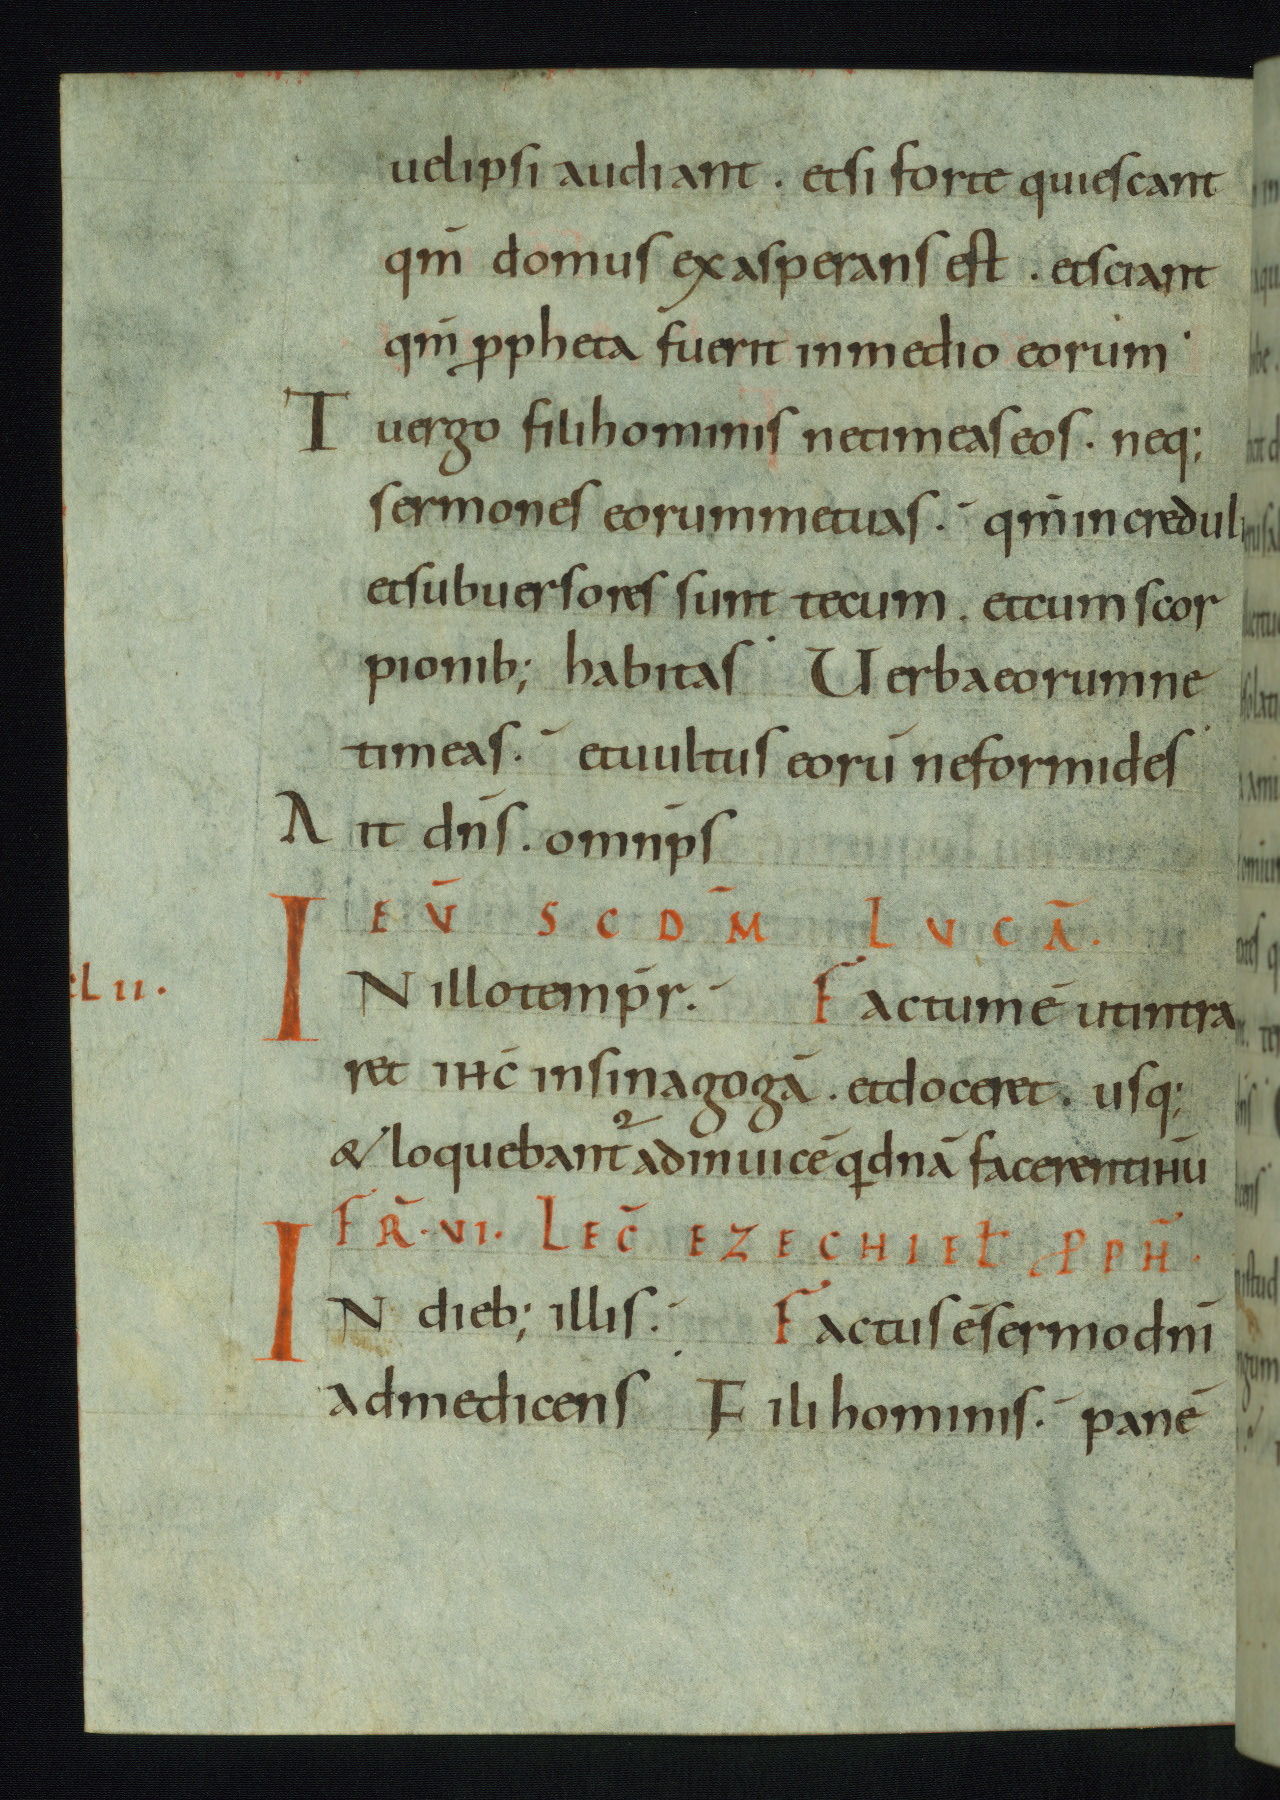 uel ipsi audiant . et si forte quiescant
qm̄ domus exasperans est . et sciant
qm̄ ꝓpheta fuerit in medio eorum ·
Tu ergo fili hominis ne timeas eos . neq;
sermones eorum metuas . qm̄ increduli
et subuersores sunt tecum . et cum scor
pionib; habitas · Uerba eorum ne
timeas . et uultus eorū ne formides ·
Ait dn̄s . omnip̄s
EṼ SCDM̄ LVCĀ .
cL II .
IN illo temp̄r . Factum ē ut intra
ret IHC̄ in sinagogā . et doceret . usq;
& loquebant᷑ ad inuicē qdnā facerent IHU̅
FR̄ . VI . LEC̄ EZECHIEƚ ꝒPH̄ .
IN dieb; illis . Factus ē sermo dn̄i
ad me dicens · Fili hominis . panē